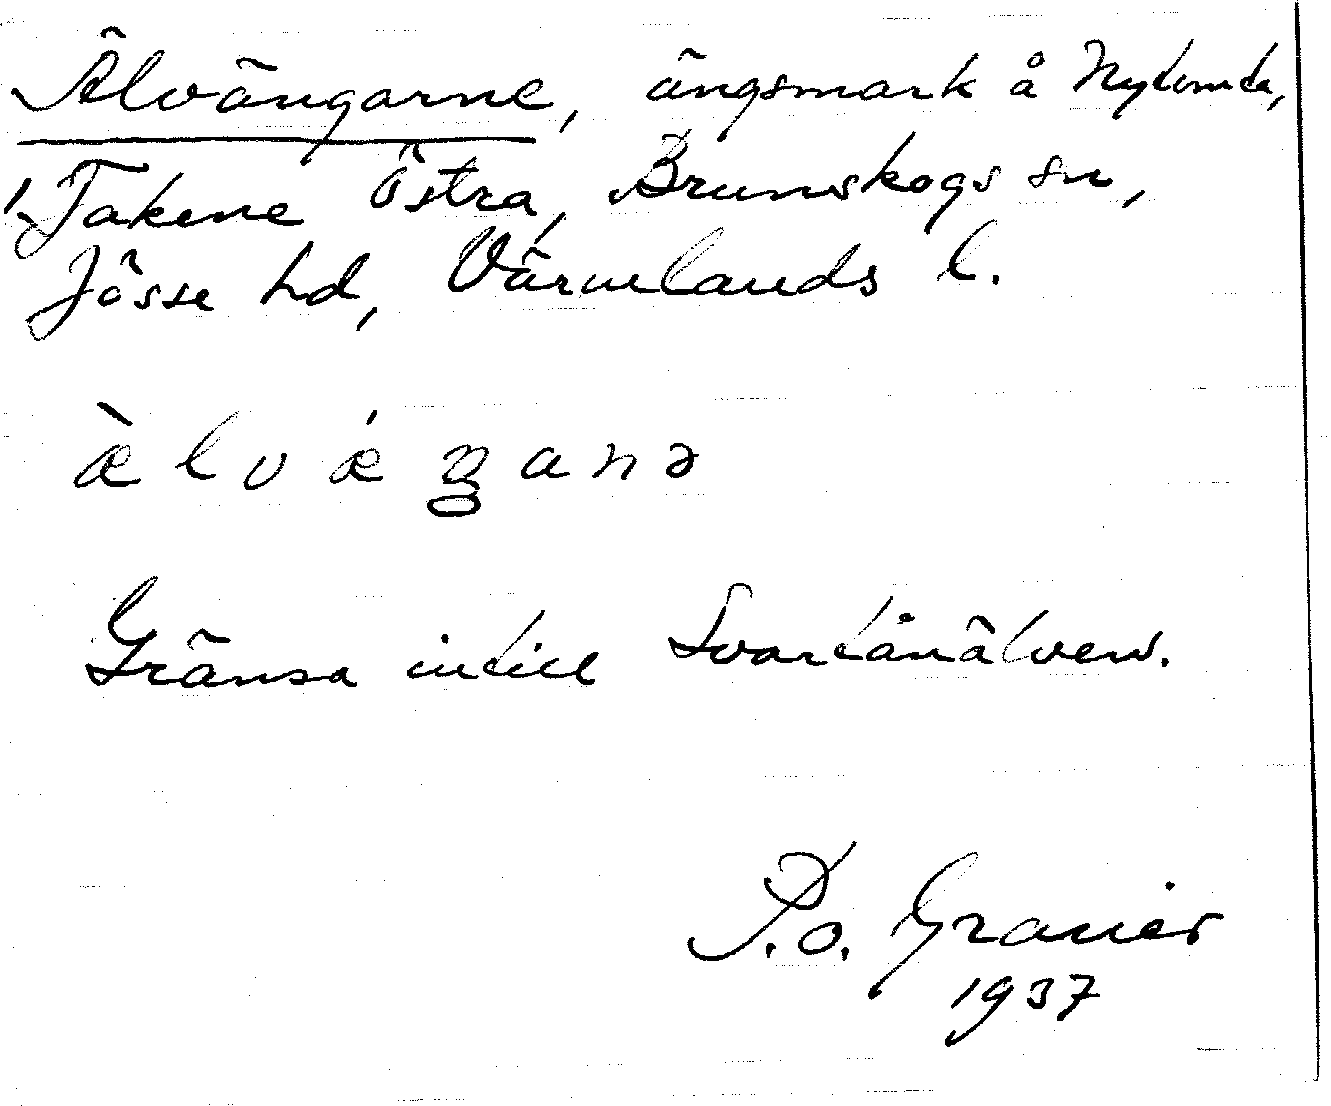 Älvängarne, ängsmark å Nytomta,
1. Takene Östra, Brunskogs sn,
Jösse hd, Värmlands l.
æ̀ l v ǽ ᶇ a n ə
Gränsa intill Svartånälven.
P.o. Granér
1937